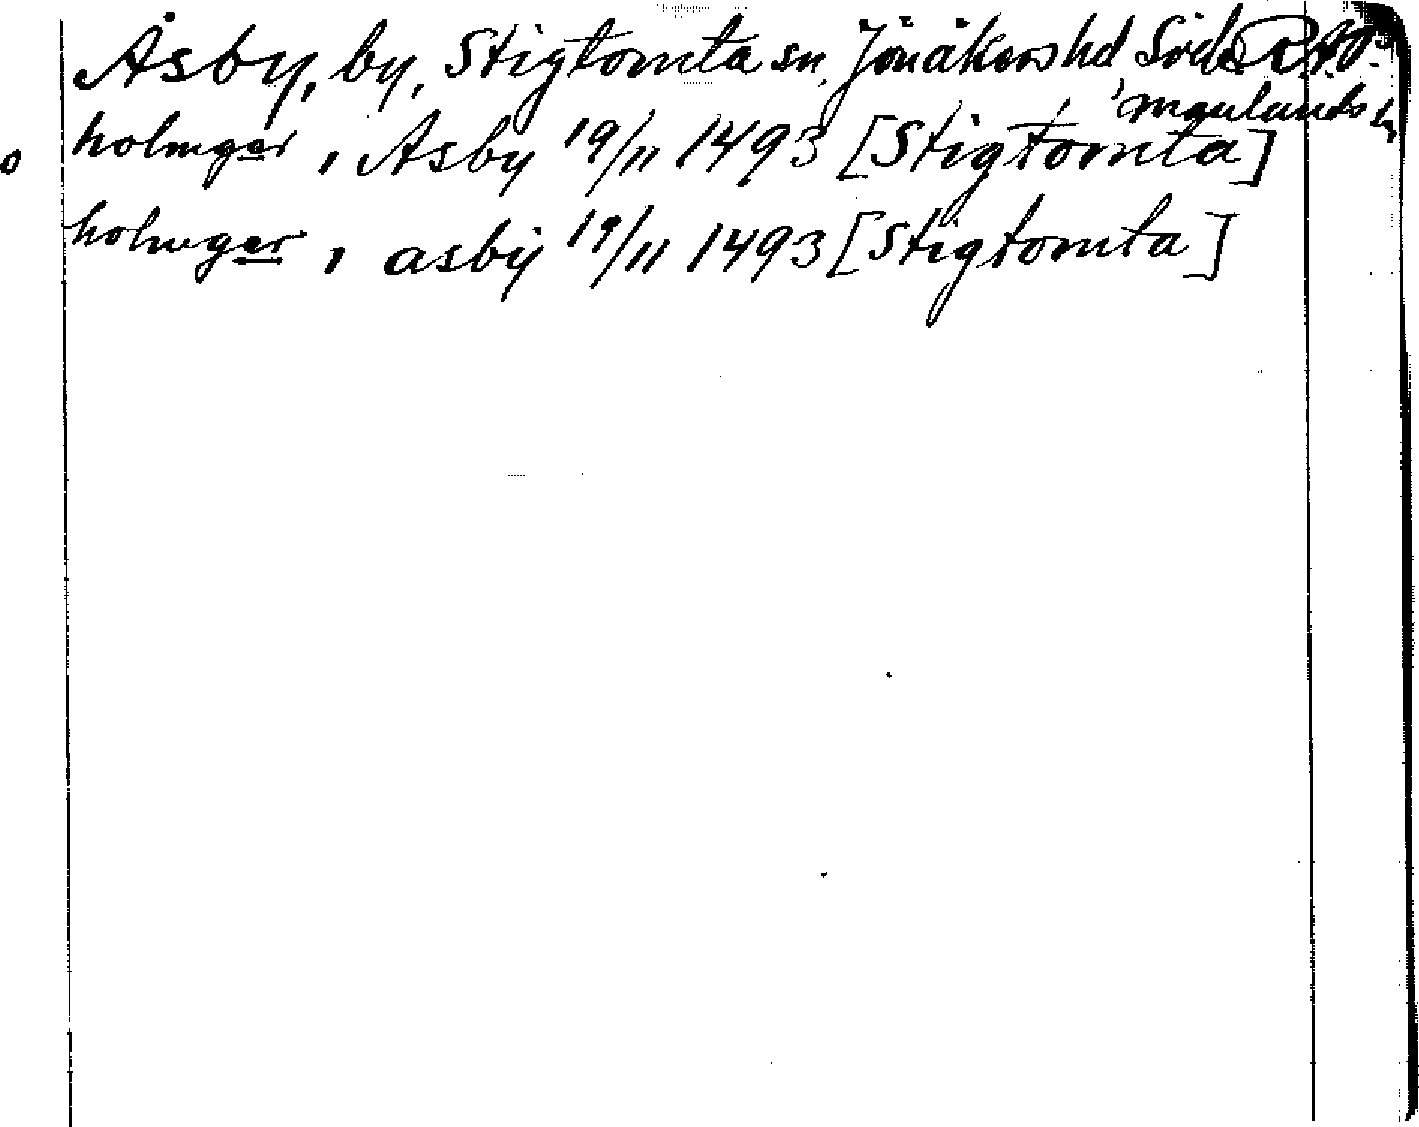 Åsby, by, Stigtomta sn, Jönåkers hd Söder
manlands
holmger, i Asby 19/11 1493 [Stigtomta]
holmger, i asbÿ 19/11 1493 [Stigtomta]